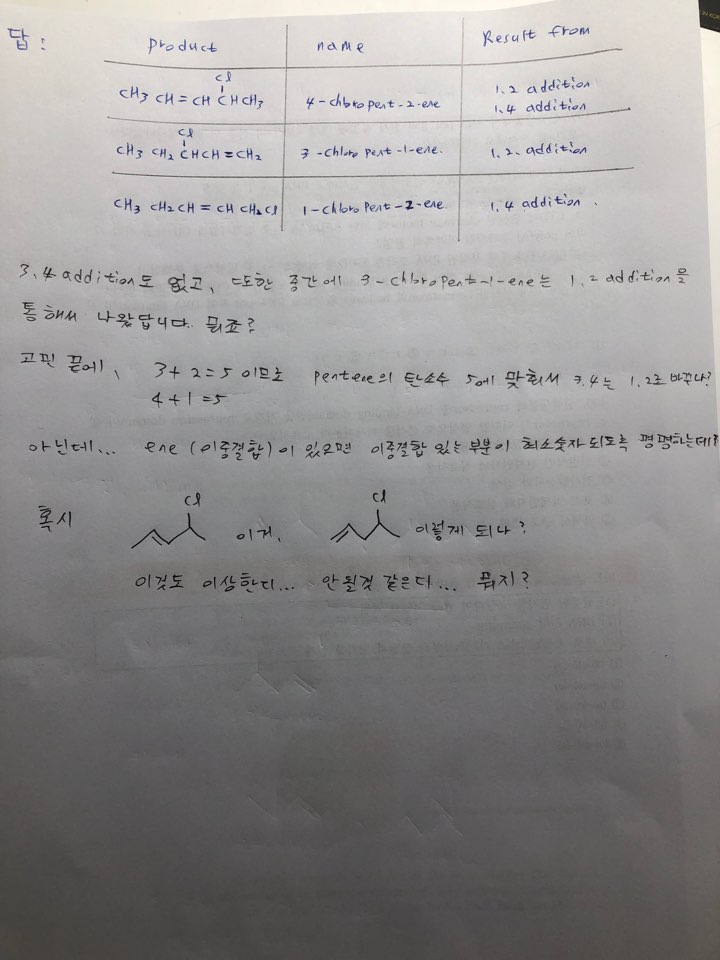 답:
product name Result from
Cl
CH3 CH=CH CHCH3 4-chloropent-2-ene 1,2 addition
1,4 addition
Cl
CH3 CH2 CHCH=CH2 3-chloropent-1-ene. 1,2. addition
CH3 CH2CH=CH CH2Cl 1-chloropent-2-ene 1,4 addition.
3.4 addition도 없고, 또한 중간에 3-chloropent-1-ene는 1,2 addition을
통해서 나왔답니다. 뭐죠?
고민 끝에, 3+2=5 이므로 pentene의 탄소수 5에 맞춰서 3,4는 1,2로 바꾸나?
4+1=5
아닌데... ene (이중결합)이 있으면 이중결합 있는 부분이 최소숫자 되도록 명명하는데?
Cl Cl
혹시 이거, 이렇게 되나?
이것도 이상한디... 안될것 같은디... 뭐지?